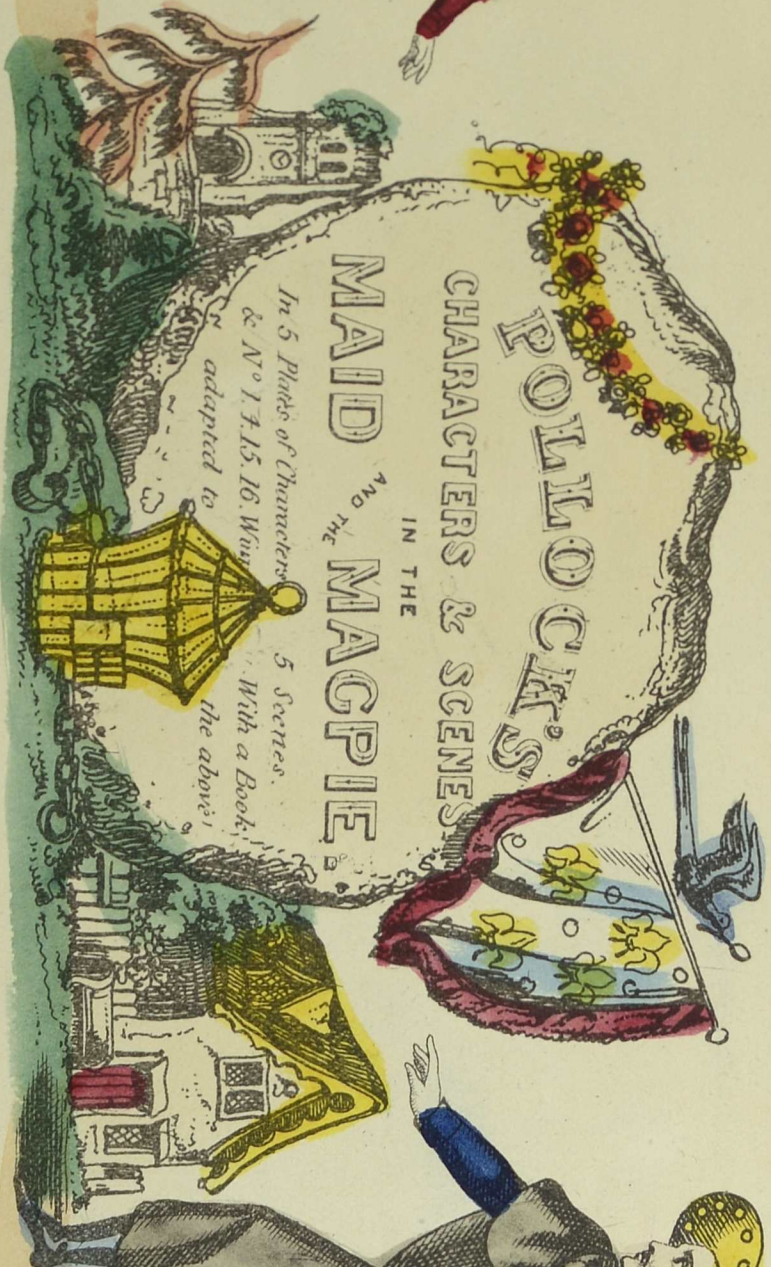 POLLOCK'S
CHARACTERS & SCENES
IN THE
MAID AND THE MAGPIE.
In 5 Plates of Characters 5 Scenes.
& No 1.7.15.16. With a Book
adapted to the above